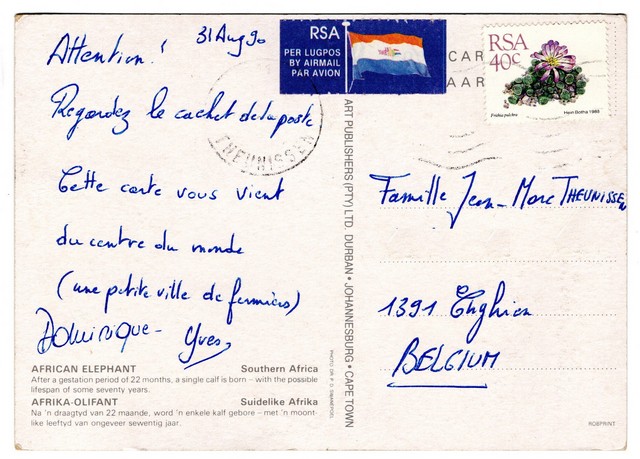 Attention!
31 Aug 90
RSA
PER LUGPOS
BY AIRMAIL
PAR AVION
RSA
40c
Frithia pulchra
Hein Botha 1988
THEUNISSEN
Regardez le cachet de la poste
Cette carte vous vient
du centre du monde
(une petite ville de fermiers)
Dominique - Yves
AFRICAN ELEPHANT Southern Africa
After a gestation period of 22 months, a single calf is born – with the possible
lifespan of some seventy years.
AFRIKA-OLIFANT Suidelike Afrika
Na 'n draagtyd van 22 maande, word 'n enkele kalf gebore – met 'n moont-
like leeftyd van ongeveer sewentig jaar.
ART PUBLISHERS (PTY) LTD. DURBAN • JOHANNESBURG • CAPE TOWN
Famille Jean-Marc THEUNISSEN
1391 Enghien
BELGIUM
ROBPRINT